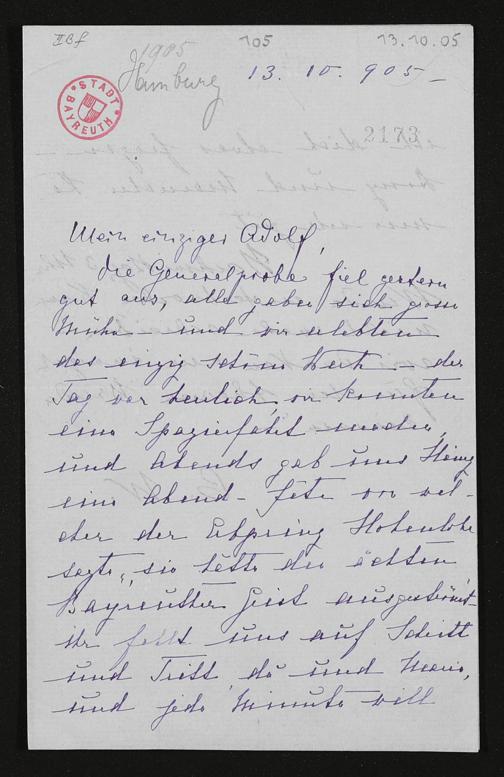 II Bf
105
13.10.05
1905
Hamburg
13. 10. 905 –
STADT BAYREUTH
2173
Mein einziger Adolf,
die Generalprobe fiel gestern
gut aus, alle gaben sich grosse
Mühe – und wir erlebten
das einzig schöne Werk – der
Tag war herrlich, wir konnten
eine Spazierfahrt machen,
und Abends gab uns
eine Abend-fête von wel-
cher der Erbprinz Hohenlohe
sagte, „sie hätte den ächten
Bayreuther Geist ausgeströmt“
ihr fehlt uns auf Schritt
und Tritt, du und
und jede Minute will